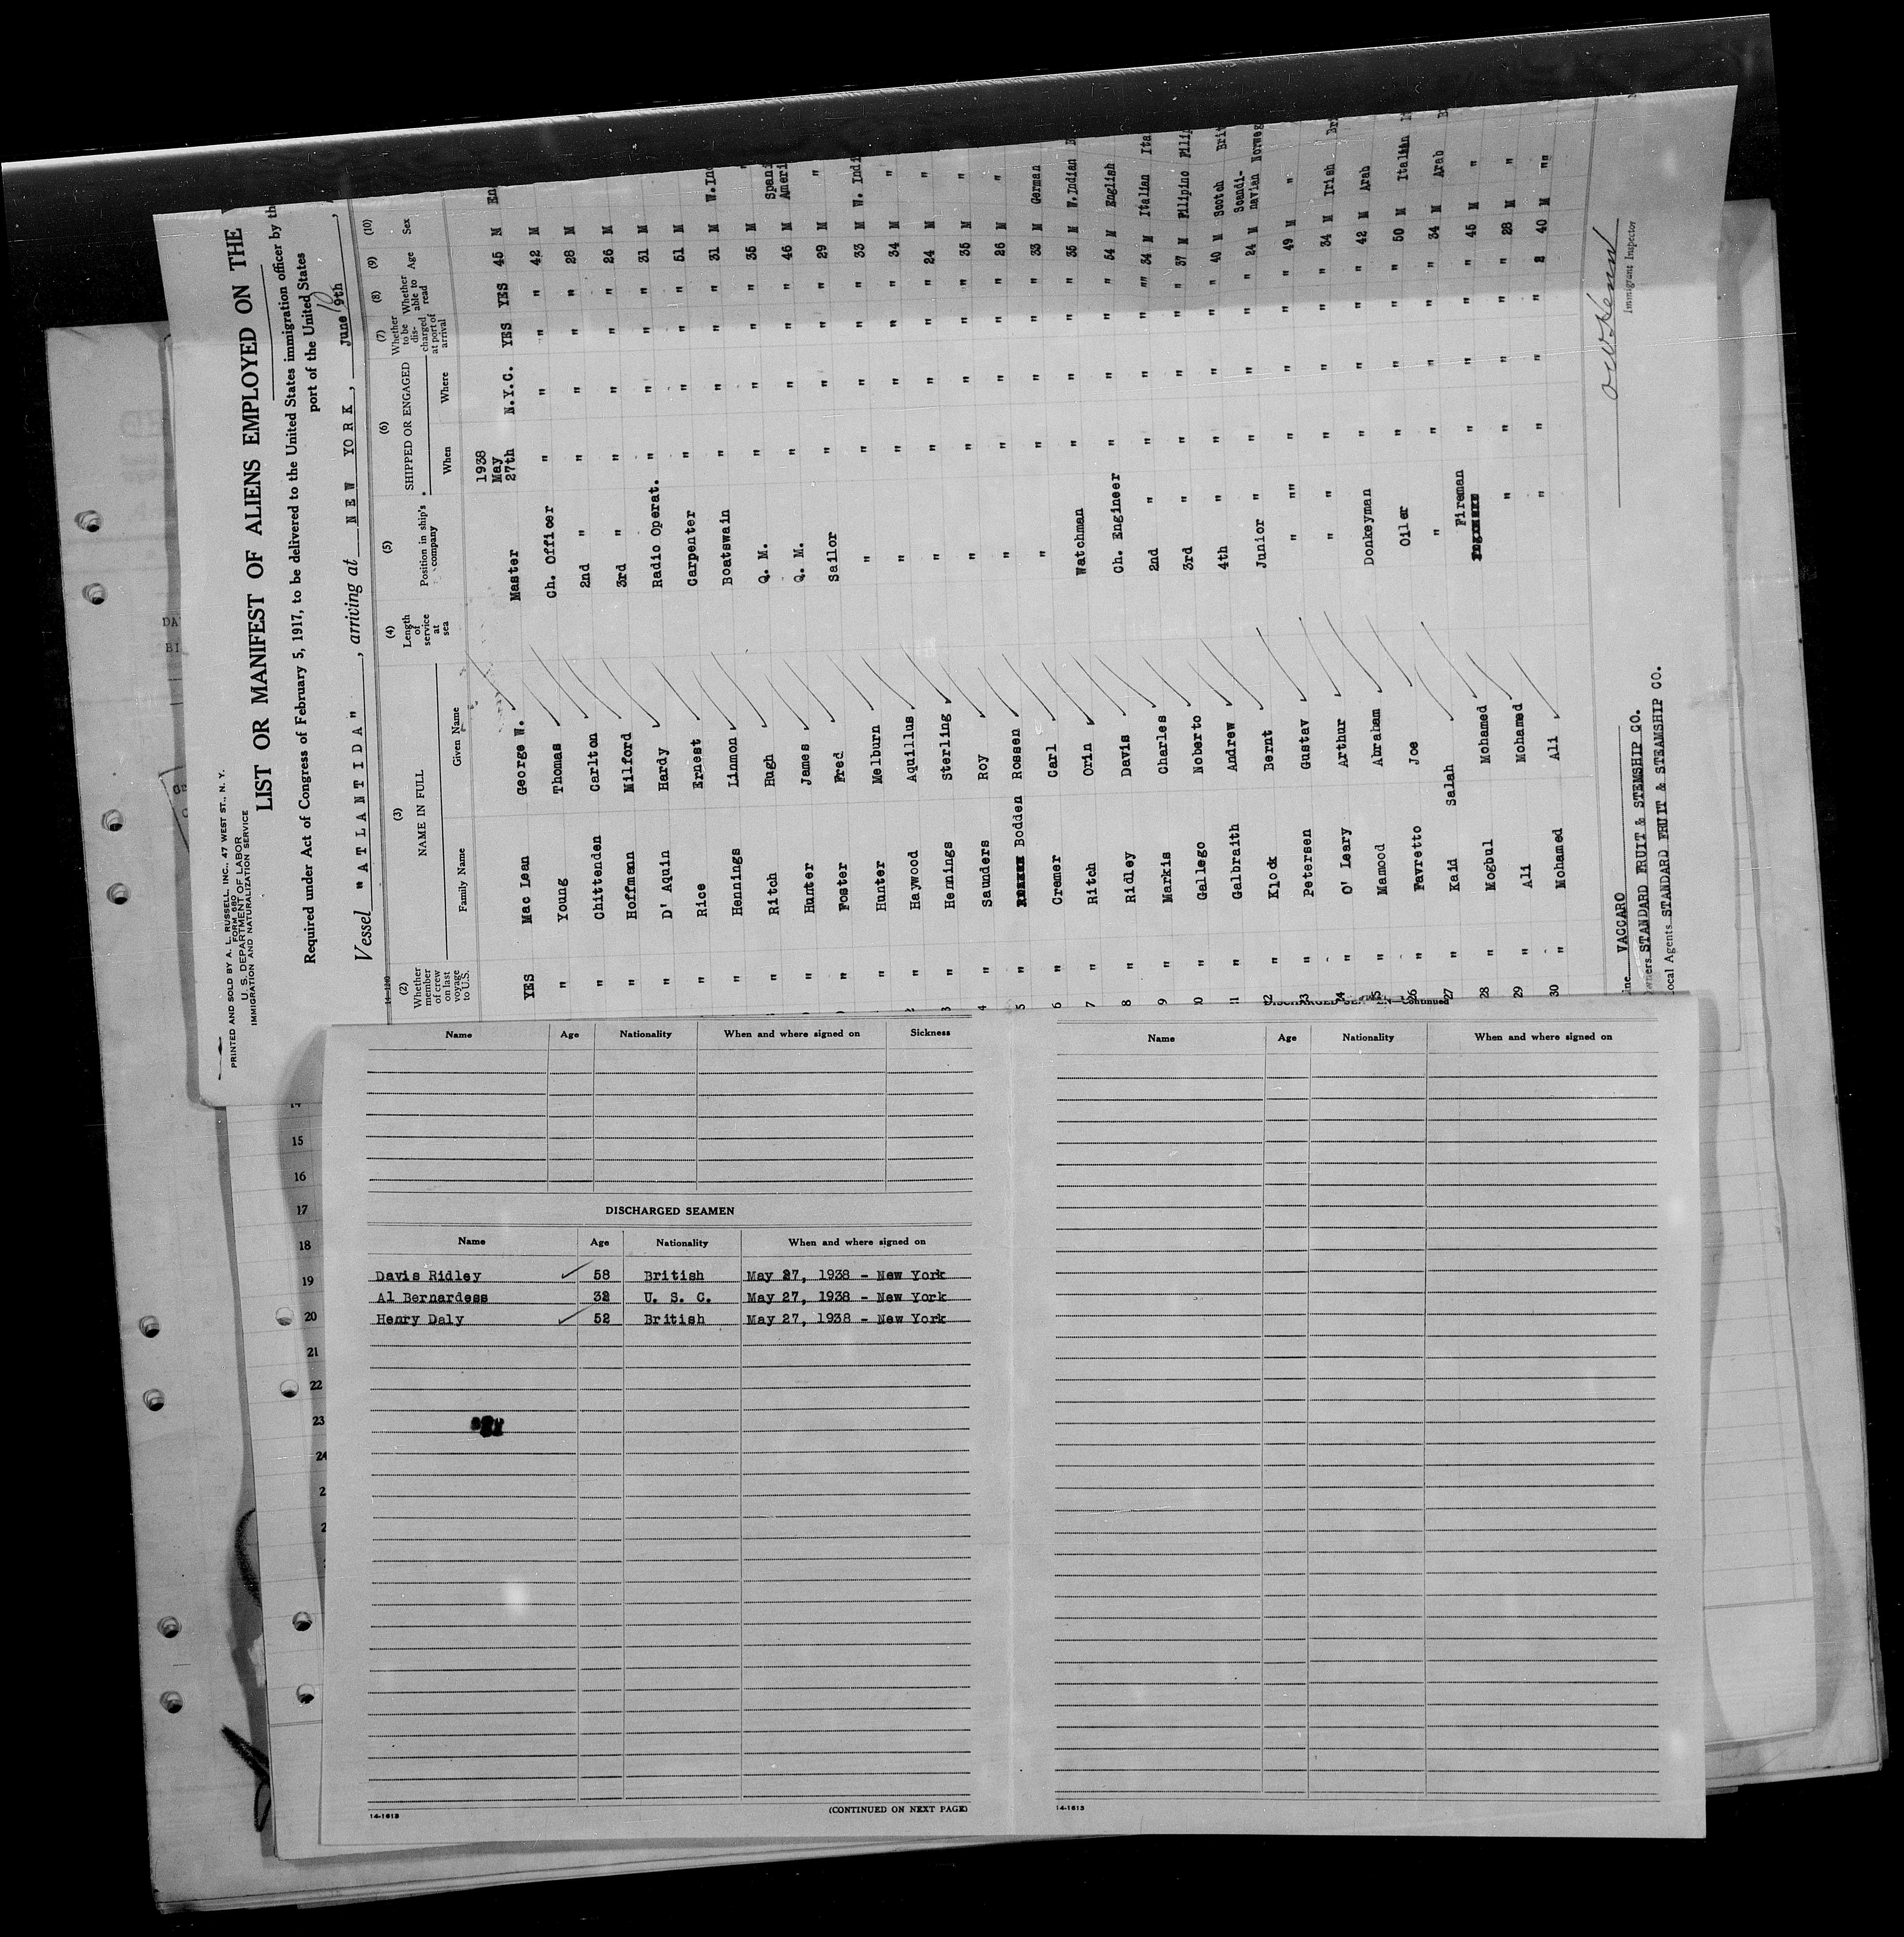 PRINTED AND SOLD BY A. L. RUSSELL, INC., 47 WEST ST., N. Y.
FORM 680
U. S. DEPARTMENT OF LABOR
IMMIGRATION AND NATURALIZATION SERVICE
LIST OR MANIFEST OF ALIENS EMPLOYED ON THE
Required under Act of Congress of February 5, 1917, to be delivered to the United States immigration officer by th
port of the United States
Vessel "ATLANTIDA", arriving at NEW YORK, June 9th,
14—1240
(2) (3) (4) (5) (6) (7) (8) (9) (10)
Whether member of crew on last voyage to U.S. NAME IN FULL Length of service at sea Position in ship's company SHIPPED OR ENGAGED Whether to be discharged at port of arrival Whether able to read Age Sex
Family Name Given Name When Where
YES Mac Lean George W. Master 1938 May 27th N.Y.C. YES YES 45 M En
" Young Thomas Ch. Officer " " " " 42 M
" Chittenden Carlton 2nd " " " " " 28 M
" Hoffmann Milford 3rd " " " " " 26 M
" D' Aquin Hardy Radio Operat. " " " " 31 M
" Rice Ernest Carpenter " " " " 51 M
" Hennings Linmon Boatswain " " " " 31 M W.Ind
" Ritch Hugh Q. M. " " " " 35 M "
" Hunter James Q. M. " " " " 46 M Spani Ameri
" Foster Fred Sailor " " " " 29 M "
" Hunter Melburn " " " " " 33 M W. Indi
2 " Haywood Aquillus " " " " " 34 M "
3 " Hennings Sterling " " " " " 24 M "
4 " Saunders Roy " " " " " 35 M "
5 " Bodden Rossen " " " " " 26 M "
6 " Cremer Carl " " " " " 33 M German
7 " Ritch Orin Watchman " " " " 35 M W.Indian B
8 " Ridley Davis Ch. Engineer " " " " 54 M English
9 " Markis Charles 2nd " " " " "" 34 M Italian Ita
0 " Gallego Noberto 3rd " " " " " 37 M Filipino Filip
1 " Galbraith Andrew 4th " " " " " 40 M Scotch Brit
22 " Klock Bernt Junior " " " " " 24 M Scandi-navian Norweg
23 " Petersen Gustav " "" " " " " 49 M "
24 " O' Leary Arthur " " " " " " 34 M Irish Bri
25 " Mamood Abraham Donkeyman " " " " 42 M Arab
26 " Favretto Joe Oiler " " " " 50 M Italian It
27 " Kaid Salah " " " " " 34 M Arab B
28 " Mogbul Mohamed Fireman " " " " 45 M "
29 " Ali Mohamed " " " " " 28 M "
30 " Mohamed Ali " " " " 40 M ""
ine VACCARO
wners STANDARD FRUIT & STEMSHIP CO.
ocal Agents STANDARD FRUIT & STEAMSHIP CO.
Immigrant Inspector
DISCHARGED SEAMEN—Continued
Name Age Nationality When and where signed on Sickness
Name Age Nationality When and where signed on
DISCHARGED SEAMEN
Name Age Nationality When and where signed on
Davis Ridley 58 British May 27, 1938 - New York
Al Bernardess 32 U. S. C. May 27, 1938 - New York
Henry Daly 52 British May 27, 1938 - New York
14-1613
(CONTINUED ON NEXT PAGE)
14-1613
14
15
16
17
18
19
20
21
22
23
24
2
2
DA
BI